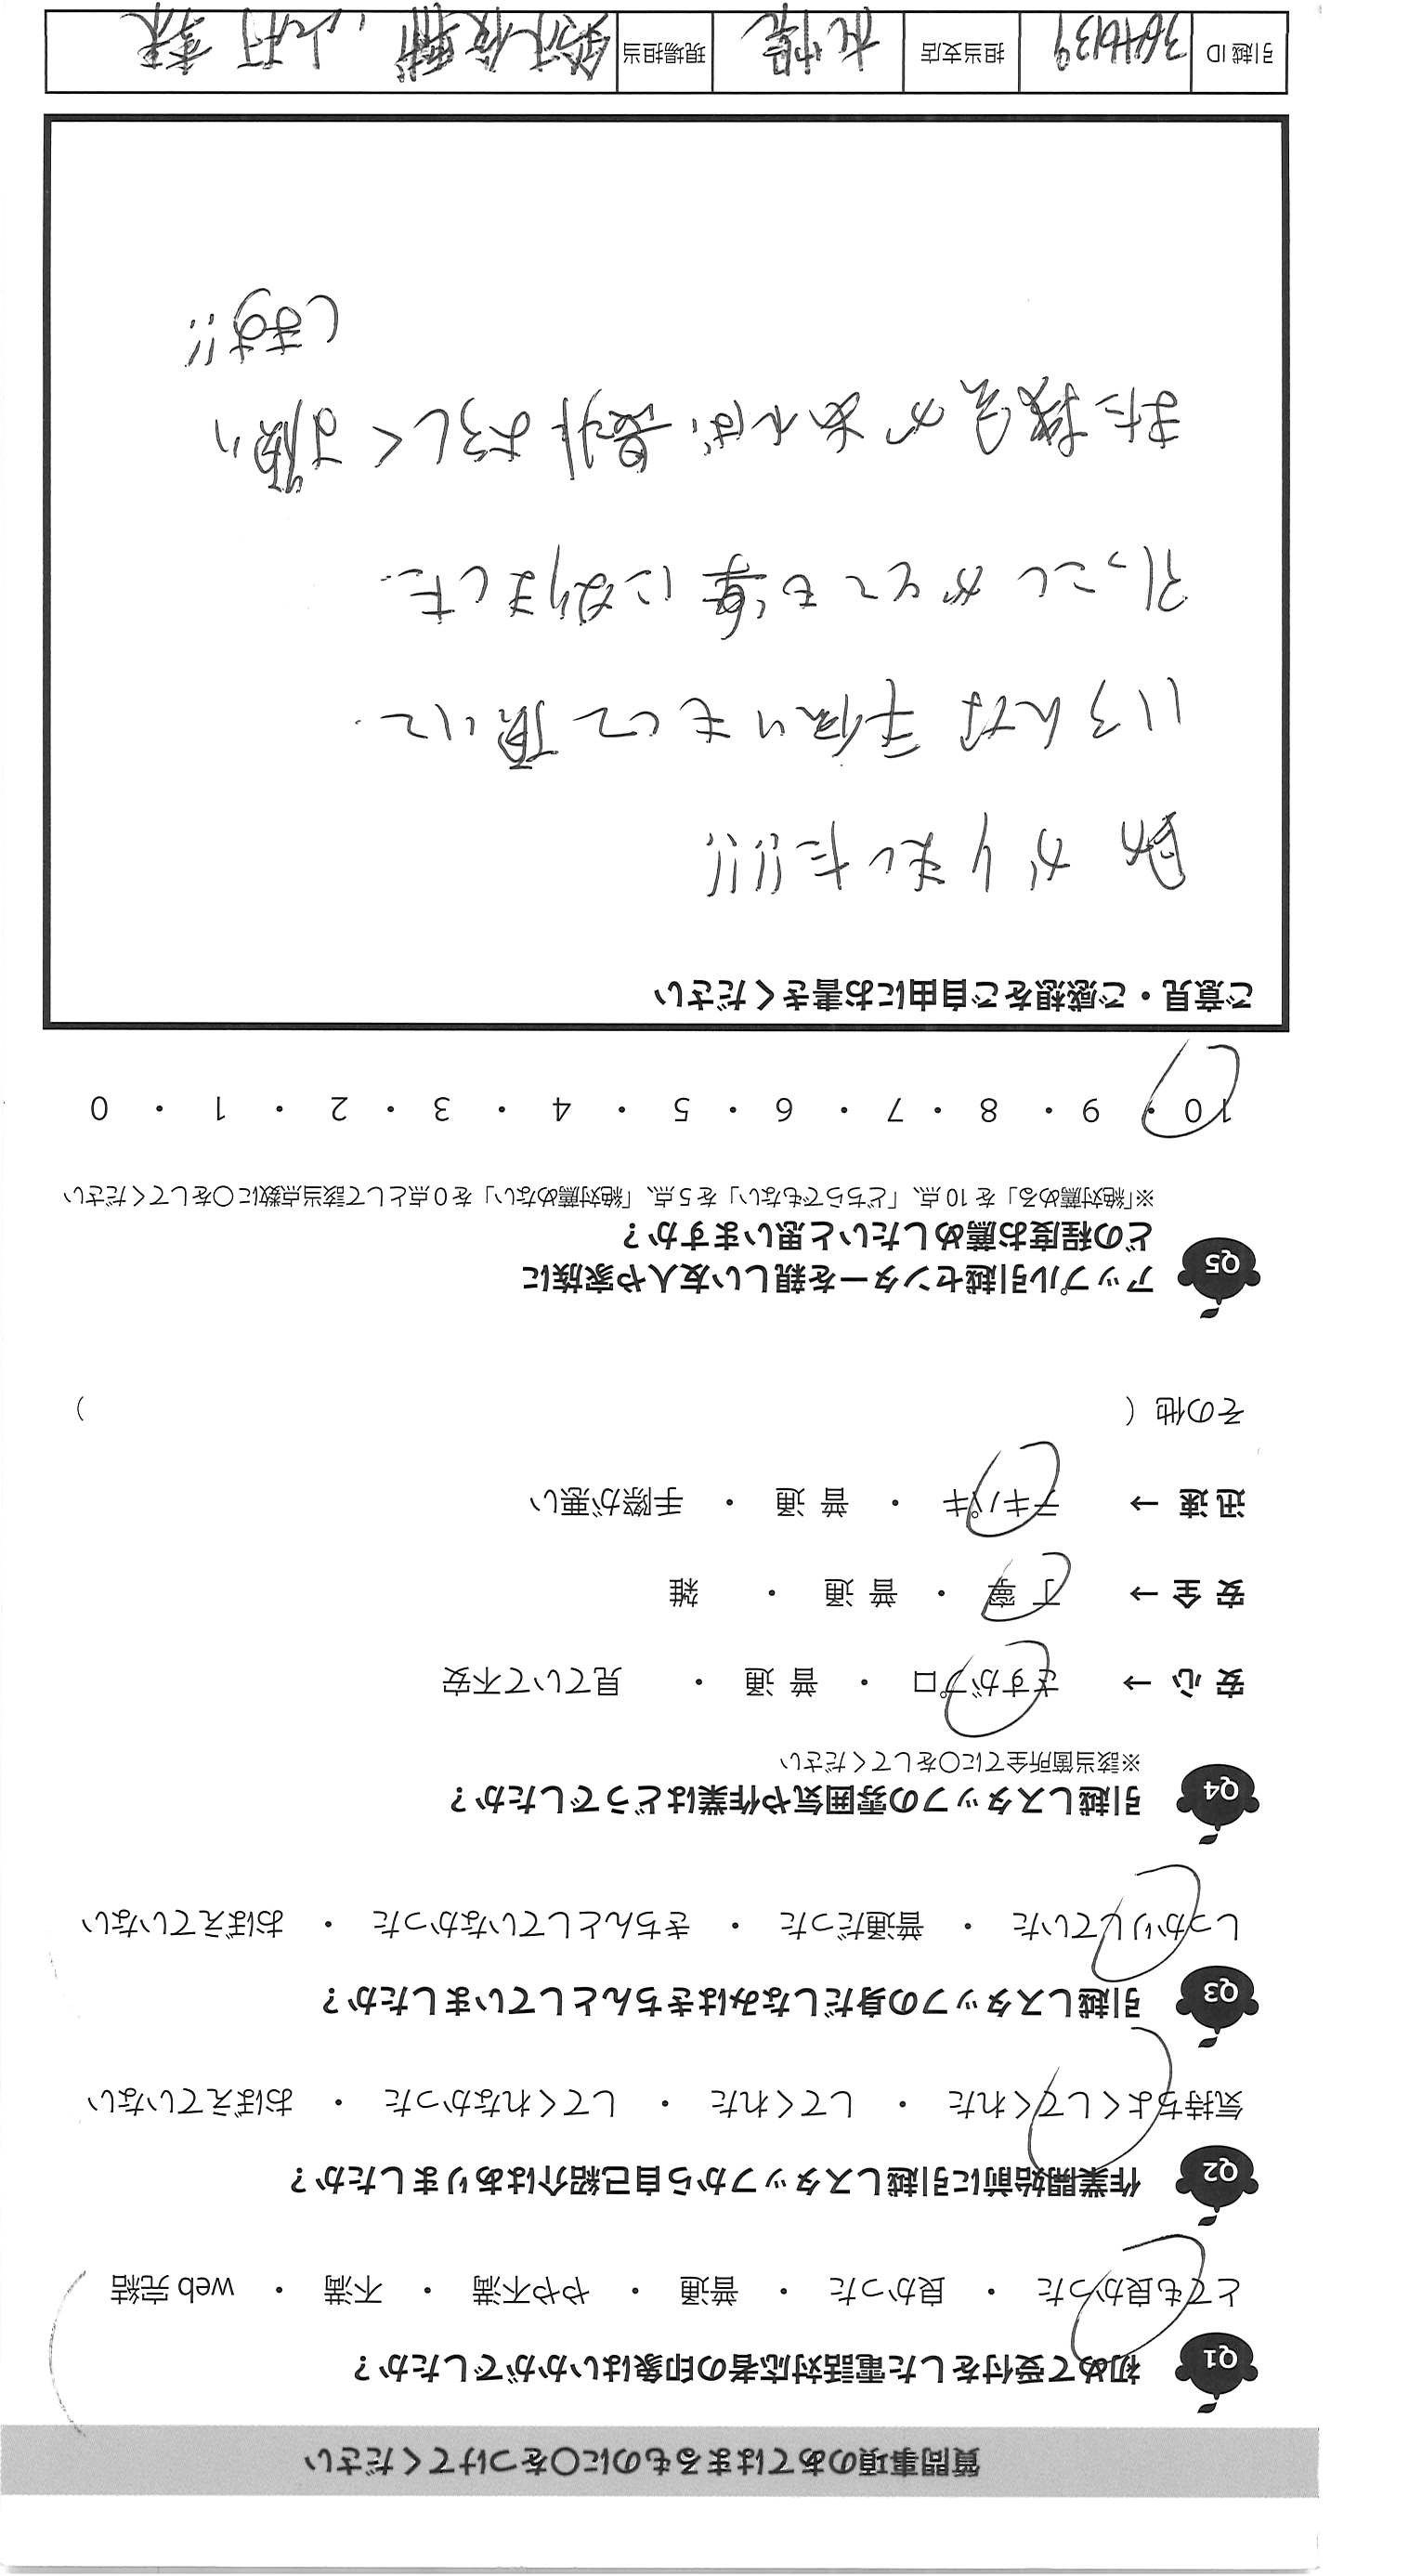 質問事項のあてはまるものに〇をつけてください
Q1 初めて受付をした電話対応者の印象はいかがでしたか？
とても良かった ・ 良かった ・ 普通 ・ やや不満 ・ 不満 ・ web 完結
Q2 作業開始前に引越しスタッフから自己紹介はありましたか？
気持ちよくしてくれた ・ してくれた ・ してくれなかった ・ おぼえていない
Q3 引越しスタッフの身だしなみはきちんとしていましたか？
しっかりしていた ・ 普通だった ・ きちんとしていなかった ・ おぼえていない
Q4 引越しスタッフの雰囲気や作業はどうでしたか？
※該当箇所全てに〇をしてください
安心 → さすがプロ ・ 普通 ・ 見ていて不安
安全 → 丁寧 ・ 普通 ・ 雑
迅速 → テキパキ ・ 普通 ・ 手際が悪い
その他 （ ）
Q5 アップル引越センターを親しい友人や家族に
どの程度お薦めしたいと思いますか？
※「絶対薦める」を 10 点、「どちらでもない」を 5 点、「絶対薦めない」を 0 点として該当点数に〇をしてください
10 ・ 9 ・ 8 ・ 7 ・ 6 ・ 5 ・ 4 ・ 3 ・ 2 ・ 1 ・ 0
ご意見・ご感想をご自由にお書きください
助かりました!!!!
いろんな手伝いもして頂いて
引っこしがとても楽になりました.
また機会があれば、是非よろしくお願い
します!!
引越 ID 担当支店 札幌 現場担当